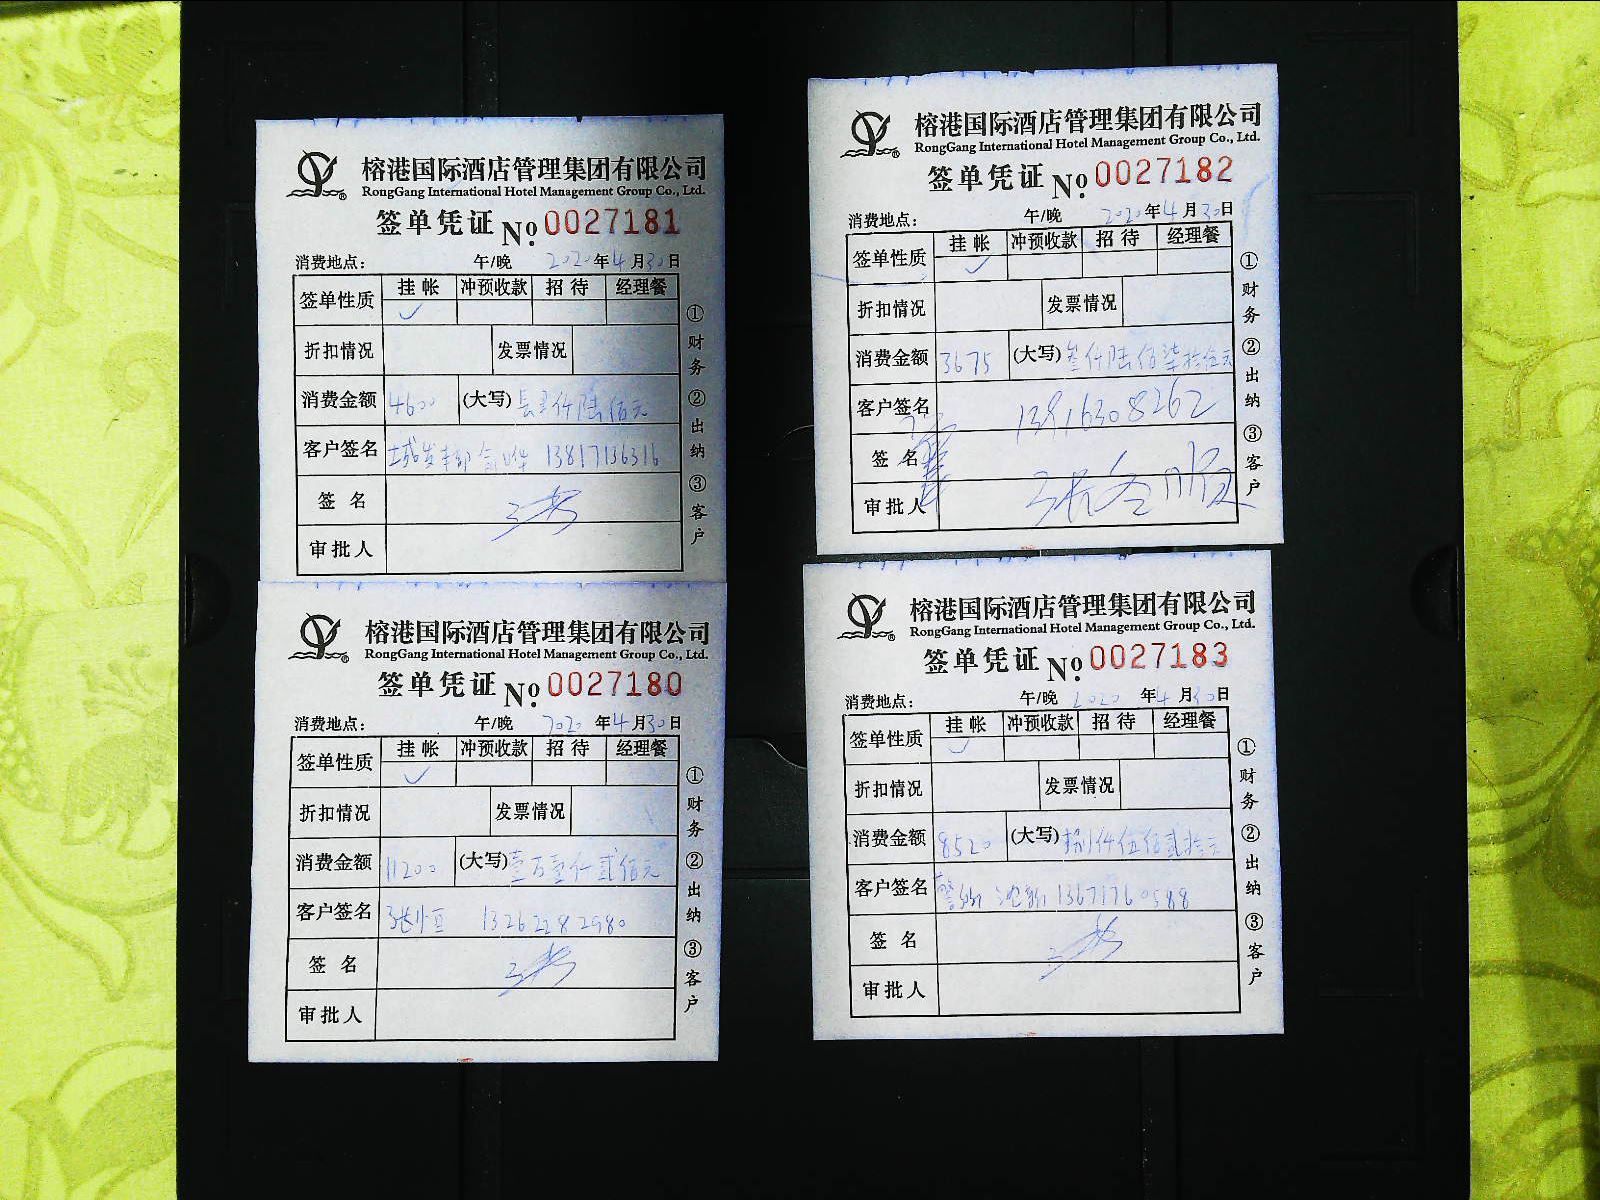 榕港国际酒店管理集团有限公司
RongGang International Hotel Management Group Co., Ltd.
签单凭证 No. 0027181
消费地点： 午/晚 2020年4月30日
签单性质 挂帐 冲预收款 招待 经理餐
✓
折扣情况 发票情况
消费金额 4600 (大写) 仟陆佰元
客户签名 13817136316
签名
审批人
①财务 ②出纳 ③客户
榕港国际酒店管理集团有限公司
RongGang International Hotel Management Group Co., Ltd.
签单凭证 No. 0027180
消费地点： 午/晚 2020年4月30日
签单性质 挂帐 冲预收款 招待 经理餐
✓
折扣情况 发票情况
消费金额 11200 (大写) 壹万壹仟贰佰元
客户签名 张恒 13262282980
签名
审批人
①财务 ②出纳 ③客户
榕港国际酒店管理集团有限公司
RongGang International Hotel Management Group Co., Ltd.
签单凭证 No. 0027182
消费地点： 午/晚 2020年4月30日
签单性质 挂帐 冲预收款 招待 经理餐
✓
折扣情况 发票情况
消费金额 3675 (大写) 叁仟陆佰柒拾伍元
客户签名 13916308262
签名
审批人
①财务 ②出纳 ③客户
榕港国际酒店管理集团有限公司
RongGang International Hotel Management Group Co., Ltd.
签单凭证 No. 0027183
消费地点： 午/晚 2020年4月30日
签单性质 挂帐 冲预收款 招待 经理餐
✓
折扣情况 发票情况
消费金额 8520 (大写) 捌仟伍佰贰拾元
客户签名 13671760588
签名
审批人
①财务 ②出纳 ③客户